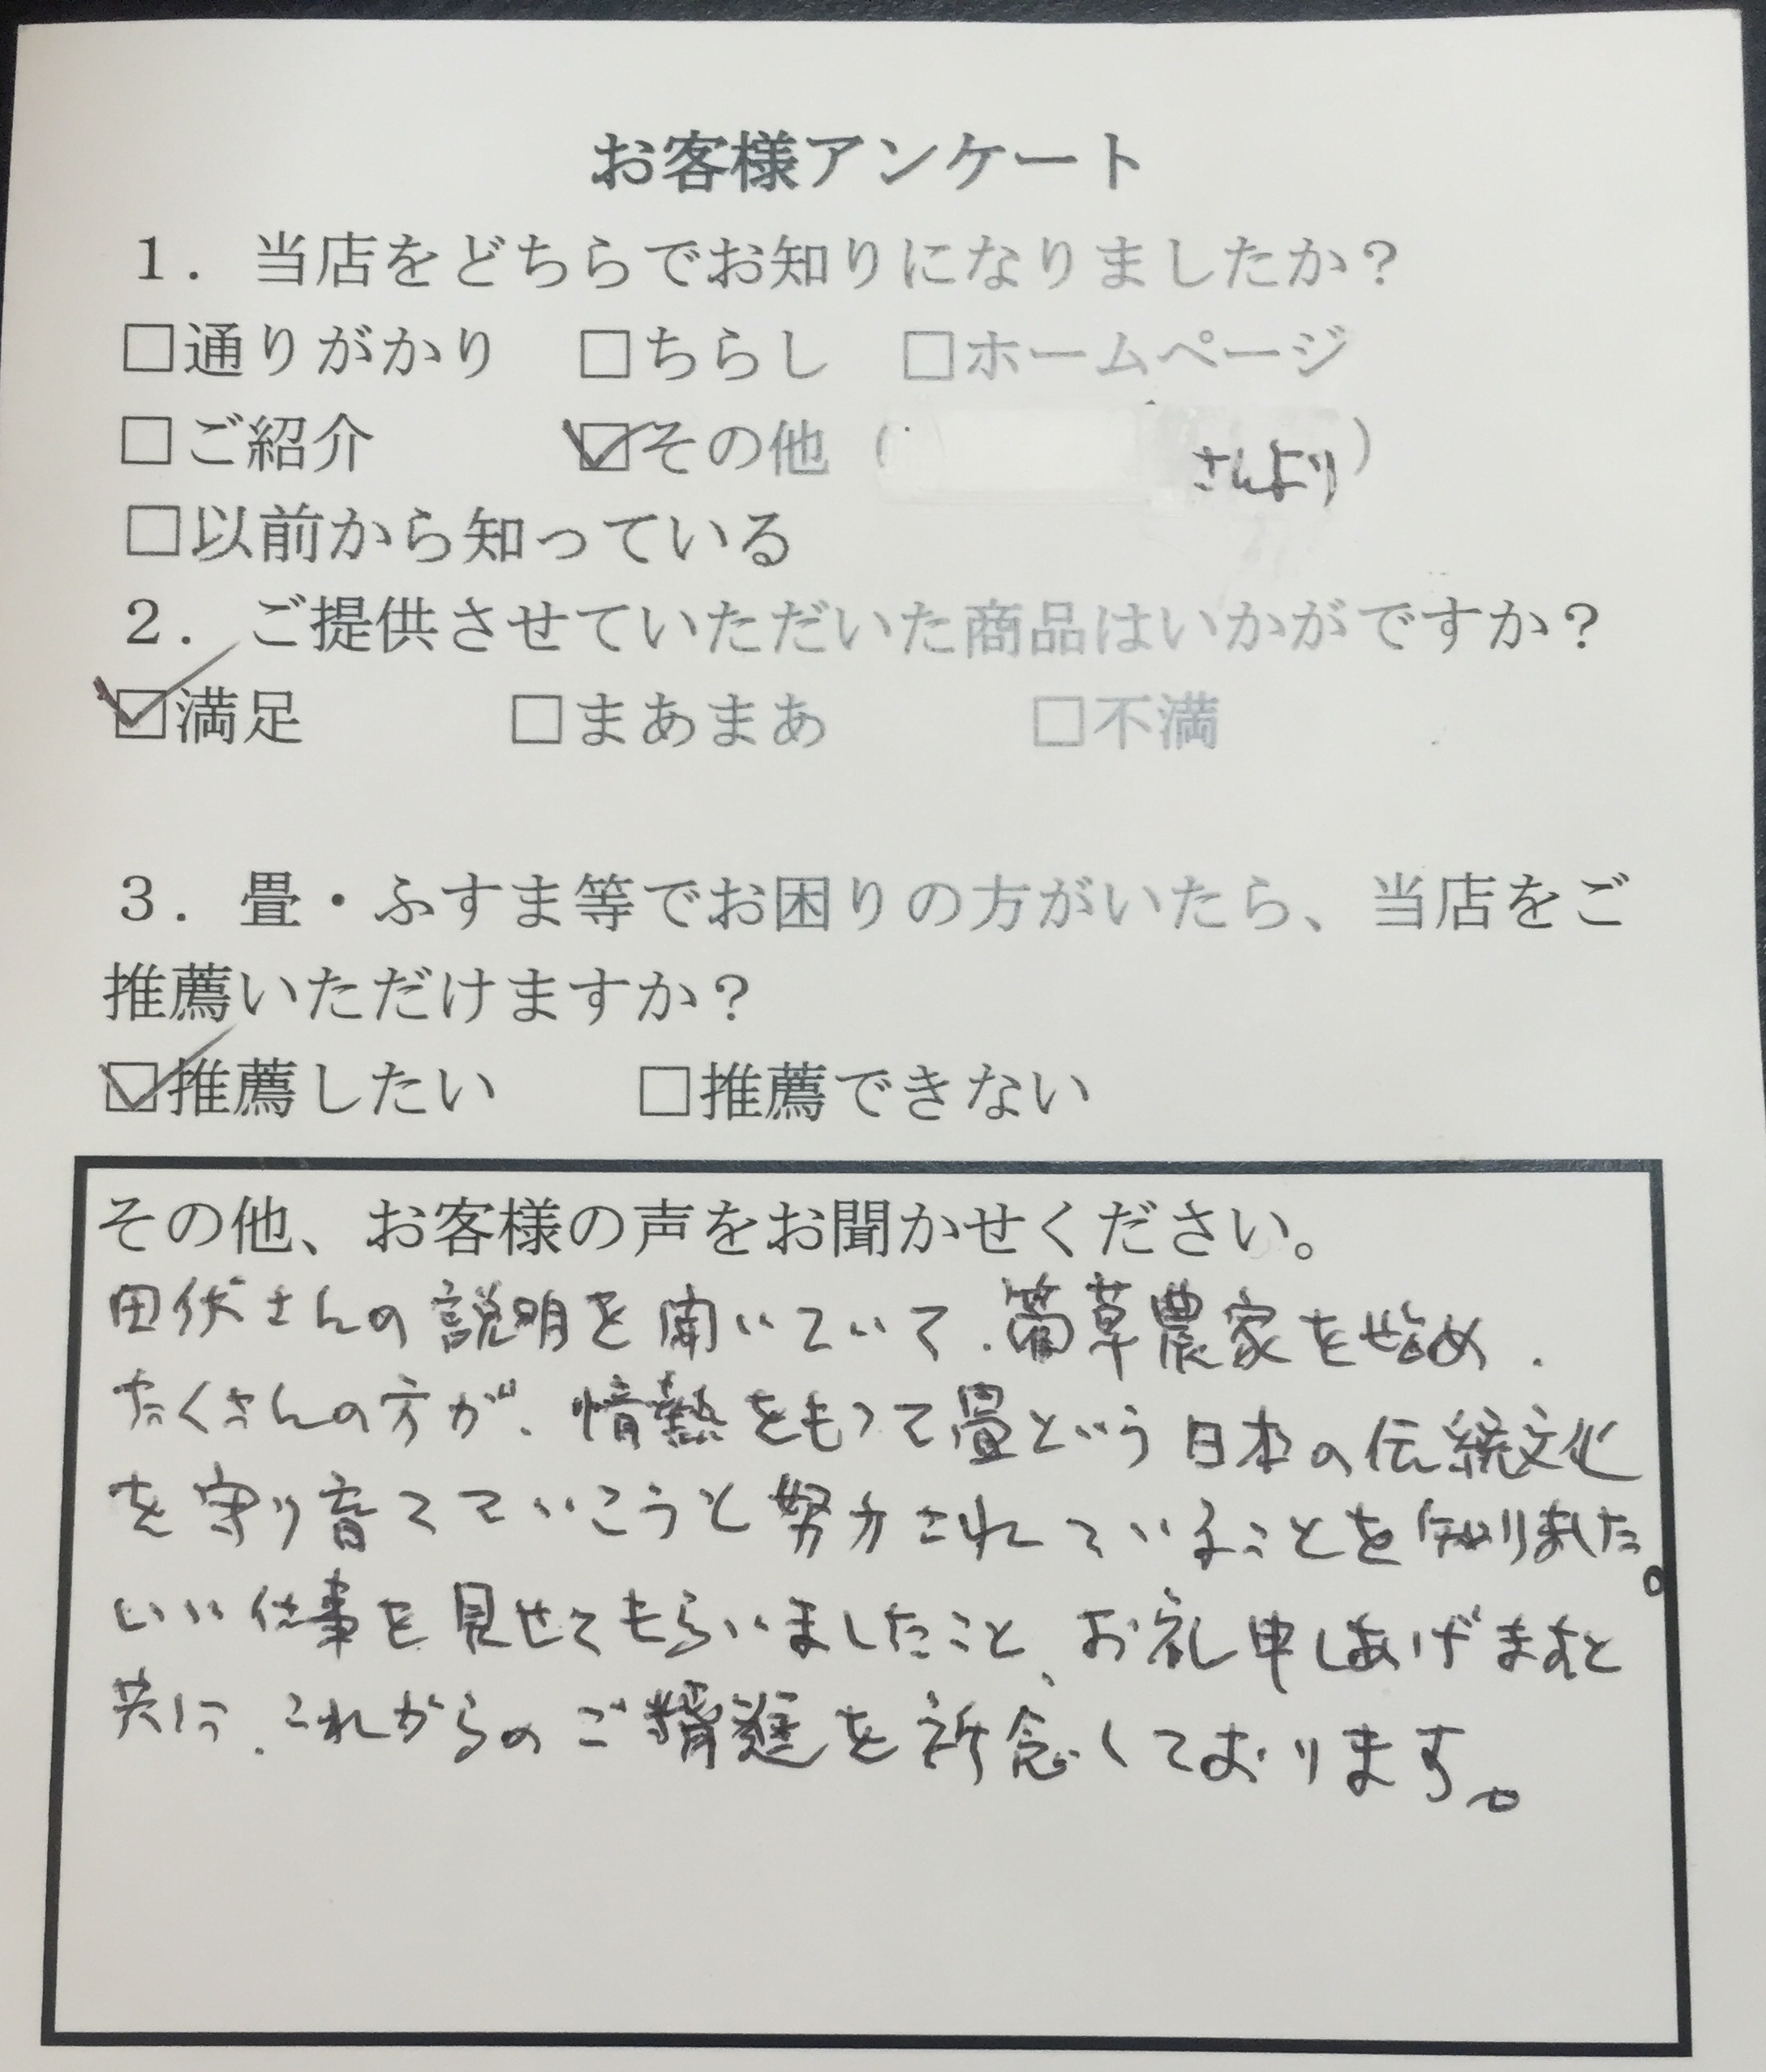 お客様アンケート
１．当店をどちらでお知りになりましたか？
□通りがかり □ちらし □ホームページ
□ご紹介 ☑その他（ さんより）
□以前から知っている
２．ご提供させていただいた商品はいかがですか？
☑満足 □まあまあ □不満
３．畳・ふすま等でお困りの方がいたら、当店をご
推薦いただけますか？
☑推薦したい □推薦できない
その他、お客様の声をお聞かせください。
田伏さんの説明を聞いていて、藺草農家を始め、
たくさんの方が、情熱をもって畳という日本の伝統文化
を守り育てていこうと努力されていることを知りました。
いい仕事を見せてもらいましたこと、お礼申しあげますと
共に、これからのご精進を祈念しております。